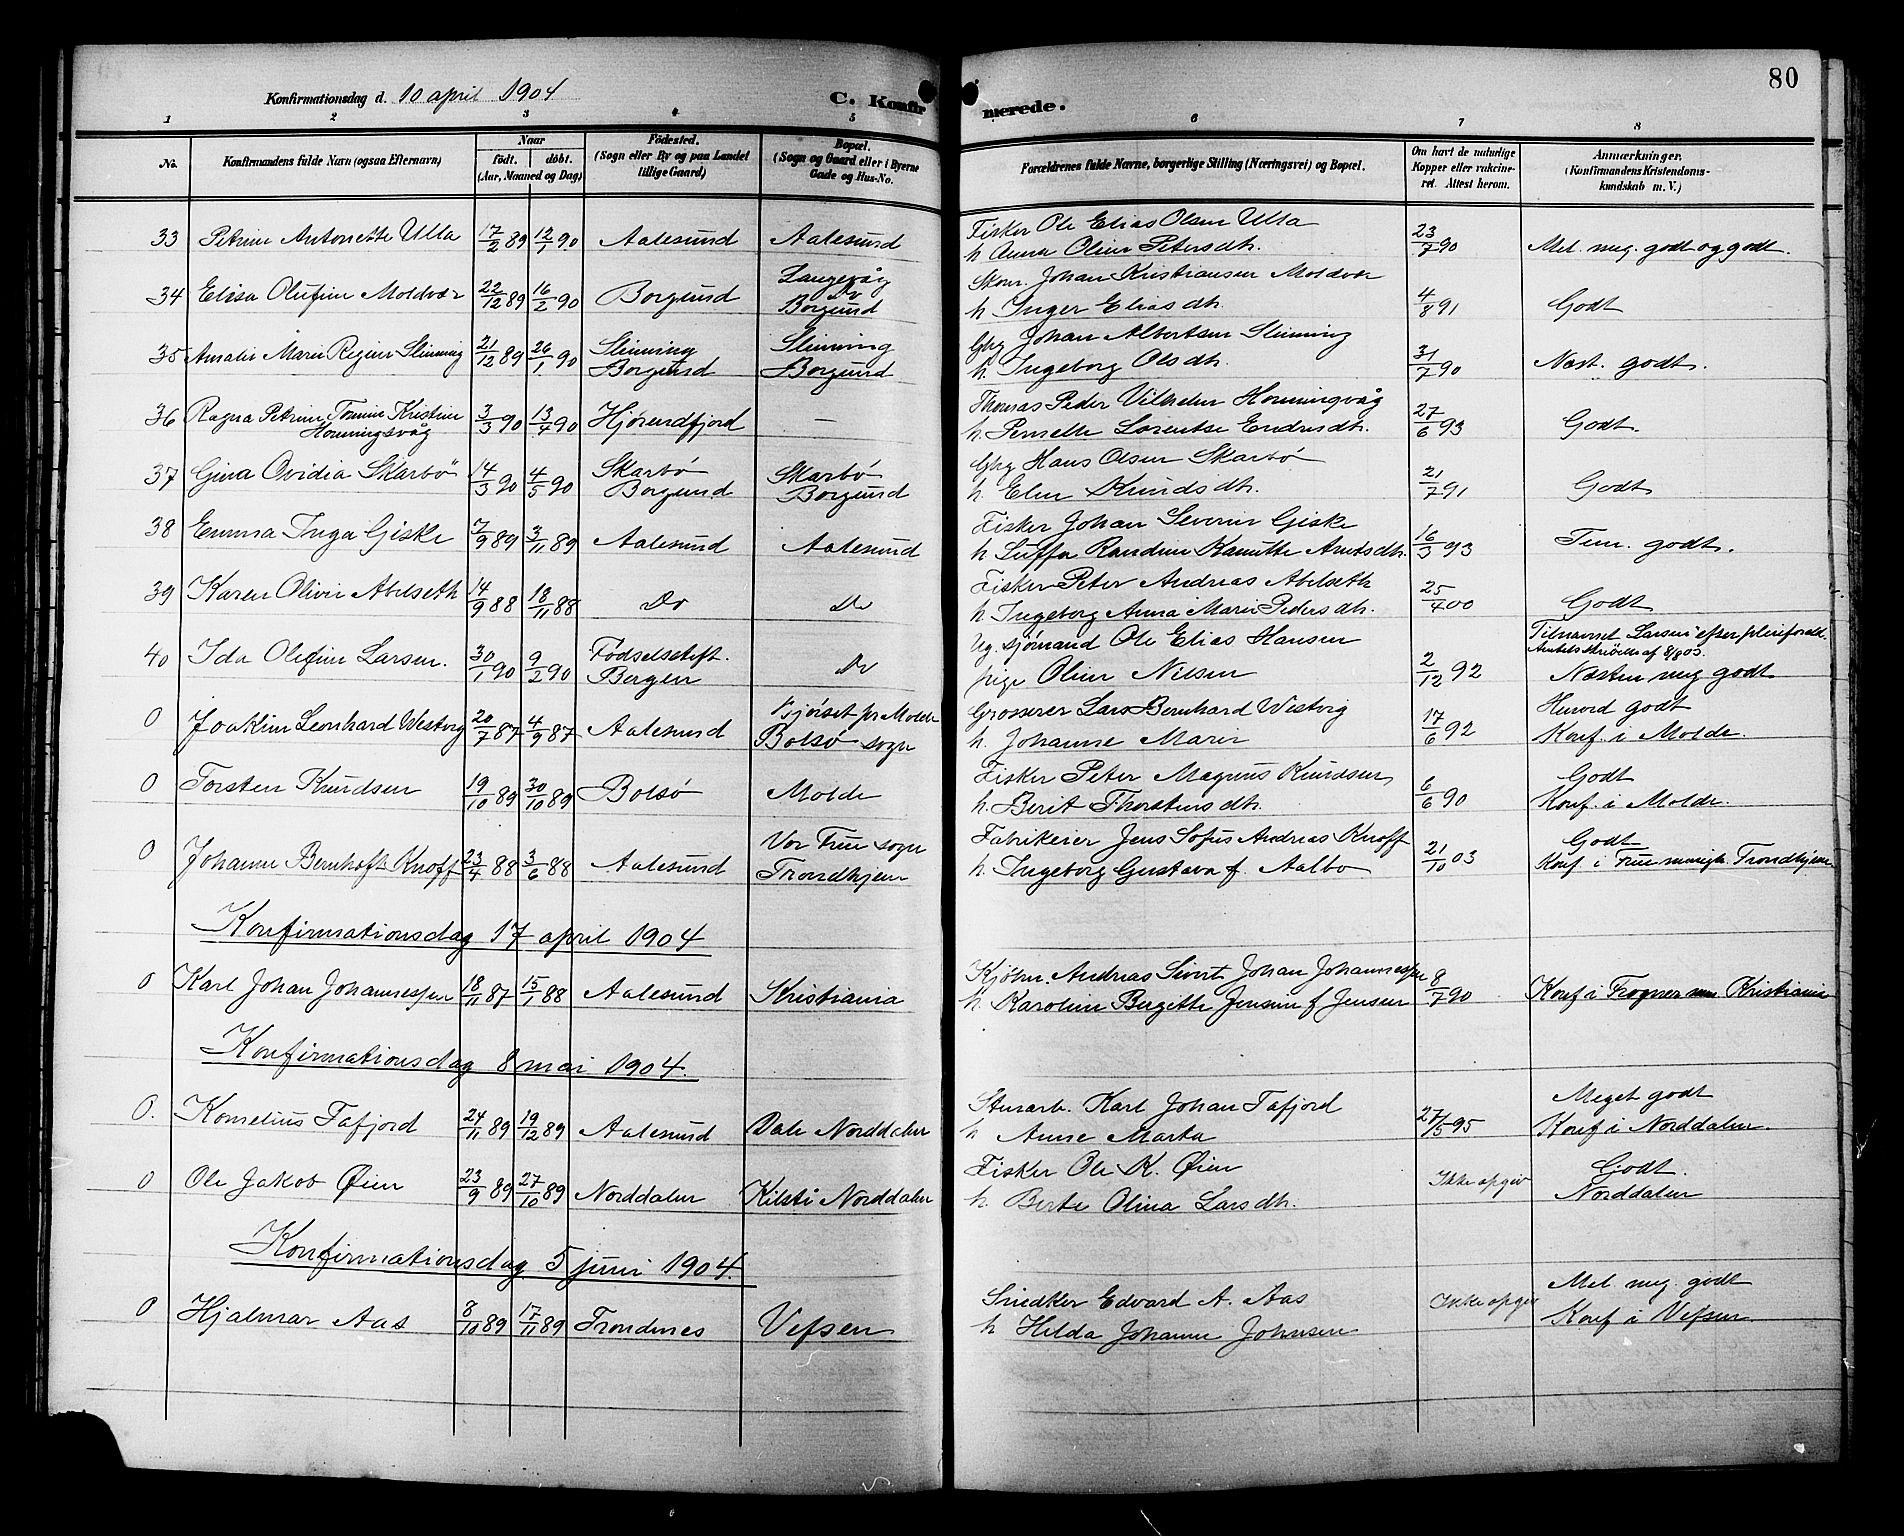 80
Konfirmationsdag d. 10 april 1904
C. Konfirmerede.
1 2 3 4 5 6 7 8
No. Konfirmandens fulde Navn (ogsaa Efternavn) Naar født. døbt. (Aar, Maaned og Dag) Fødested. (Sogn eller By og paa Landet tillige Gaard) Bopæl. (Sogn og Gaard eller i Byerne Gade og Hus-No. Forældrenes fulde Navne, borgerlige Stilling (Næringsvei) og Bopæl. Om havt de naturlige Kopper eller vakcineret. Attest herom. Anmærkninger. (Konfirmandens Kristendomskundskab m. V.)
33 Petrine Antonette Ulla 17/2 89 12/7 90 Aalesund Aalesund Fisker Ole Elias Olsen Ulla
h Anna Oline Petersdh. 23/7 90 Mel. meg. godt og godt.
34 Elisa Olufine Moldvær 22/12 89 16/2 90 Borgund Langevåg Borgund Skom. Johan Kristiansen Moldvær
h Inger Eliasdh. 4/8 91 Godt
35 Amalie Marie Regine Slinning 21/12 89 26/1 90 Slinning Borgund Slinning Borgund Gbrg Johan Albertsen Slinning
h. Ingeborg Olsdh. 31/7 90 Næst. godt.
36 Ragna Petrine Tomine Kristine Honningsvåg 3/3 90 13/4 90 Hjørendfjord — Thomas Peder Vilhelm Honningsvåg
h. Pernelle Lorentse Endresdh. 27/6 93 Godt.
37 Gina Ovidia Skarbö 14/3 90 4/5 90 Skarbø Borgund Skarbø Borgund Gbrg Hans Olsen Skarbø
h. Elen Knudsdh. 21/7 91 Godt
38 Emma Inga Giske 7/9 89 3/11 89 Aalesund Aalesund Fisker Johan Severin Giske
h Randine Kanutte 16/3 93 Tem. godt.
39 Karen Olivie Abelseth 14/9 88 18/11 88 Do Do Fisker Peter Andreas Abelseth
h. Ingeborg Anna Marie Pedersdh. 25/4 00 Godt
40 Ida Olefine Larsen. 30/1 90 9/2 90 Fødselsstift. Bergen Do Ug. sjømand Ole Elias Hansen
pige Oline Nilsen 2/12 92 Tilnavnet Larsen efter pleieforeld. Næsten meg godt
0 Joakim Leonhard Westvig 20/7 87 4/9 87 Aalesund pr Molde Bolsø sogn Grosserer Lars Bernhard Westvig
h. Johanne Marie 17/6 92 godt Konf. i Molde.
0 Torsten Knudsen 19/10 89 30/10 89 Bolsø Molde Fisker Peter Magnus Knudsen
h. Berit Thorstensdh. 6/6 90 Godt Konf. i Molde.
0 Johanne Bernhoft Knoff 23/4 88 3/6 88 Aalesund Vor Frue sogn Trondhjem Fabrikeier Jens Sofus Andreas Knoff
h. Ingeborg Gustava f. Aalbo 21/10 03 Godt Konf. i Frue menigh. Trondhjem
Konfirmationsdag 17 april 1904
0 Karl Johan Johannessen 18/11 87 15/1 88 Aalesund Kristiania Kjøbm. Andreas Sivert Johan Johannessen
h. Karoline Bergette Jensine f Jensen 8/7 90 Konf i Frogner men Kristiania
Konfirmationsdag 8 mai 1904.
0. Kornelius Tafjord 24/11 89 19/12 89 Aalesund Dale Norddalen Stenarb. Karl Johan Tafjord
h Anne Marta 27/5 95 Meget godt Konf i Norddalen.
0 Ole Jakob Øien 23/9 89 27/10 89 Norddalen Kilsti Norddalen Fisker Ole K. Øien
h. Berte Olina Larsdh. Ikke opgiv Godt. Norddalen
Konfirmationsdag 5 juni 1904.
0 Hjalmar Aas 8/10 89 17/11 89 Trondenes Vefsen Snedker Edvard A. Aas
h Hilda Johanne Johnsen Ikke opgiv Mel. meg. godt Konf i Vefsen.